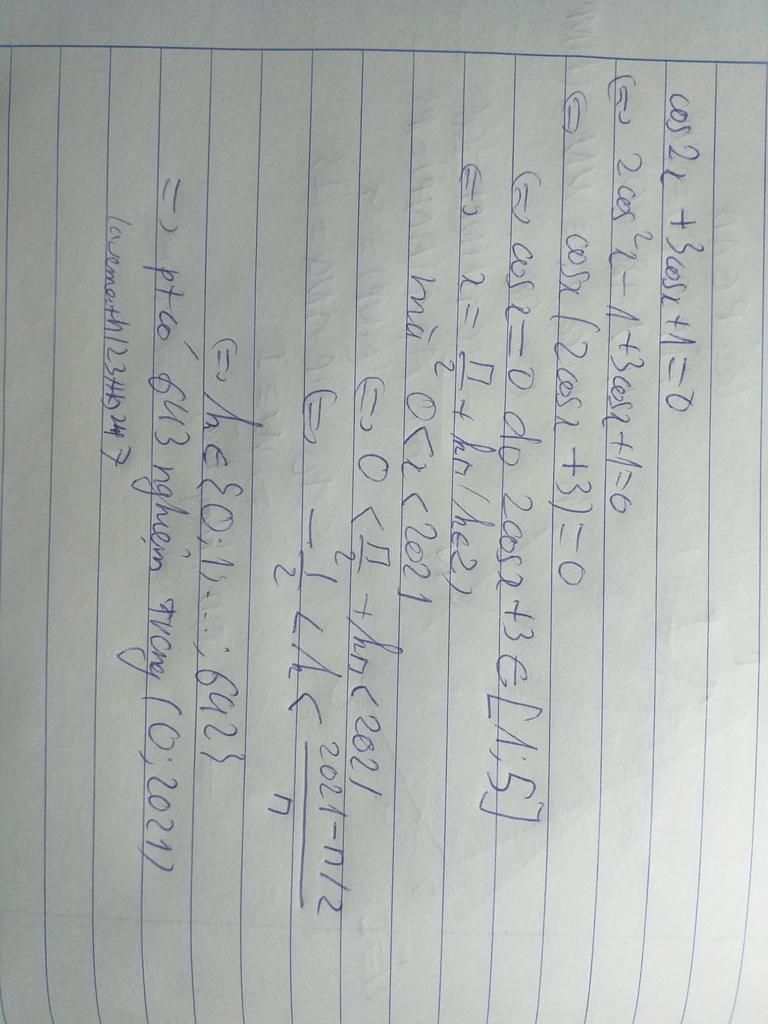 cos2x + 3cosx + 1 = 0
(=) 2cos²x - 1 + 3cosx + 1 = 0
(=) cosx (2cosx + 3) = 0
(=) cosx = 0 do 2cosx + 3 ∈ [1; 5]
(=) x = π/2 + kπ (k ∈ Z)
mà 0 < x < 2021
(=) 0 < π/2 + kπ < 2021
(=) - 1/2 < k < (2021 - π/2)/π
(=) k ∈ {0; 1; ...; 642}
=) pt có 643 nghiệm trong (0; 2021)